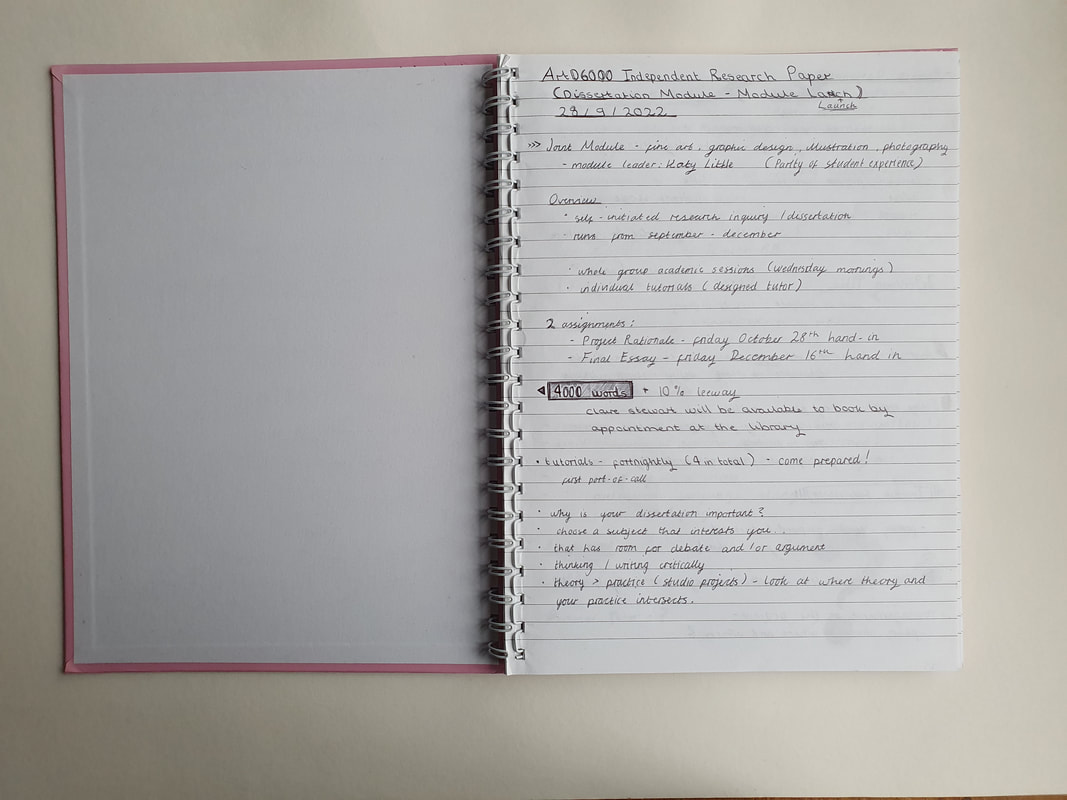 ArtD6000 Independent Research Paper
(Dissertation Module - Module Lanch)
Launch
28/9/2022
>>> Joint Module - fine art, graphic design, illustration, photography
- module leader: Katy Little (Parity of student experience)
Overview
· self-initiated research inquiry / dissertation
- runs from september - december
· whole group academic sessions (wednesday mornings)
· individual tutorials (designed tutor)
2 assignments:
- Project Rationale - friday October 28th hand-in
- Final Essay - friday December 16th hand in
4000 words + 10% leeway
clare stewart will be available to book by
appointment at the library
· tutorials - fortnightly (4 in total) - come prepared!
first port-of-call
· why is your dissertation important?
· choose a subject that interests you.
· that has room for debate and/or argument
· thinking / writing critically
· theory > practice (studio projects) - look at where theory and
your practice intersects.